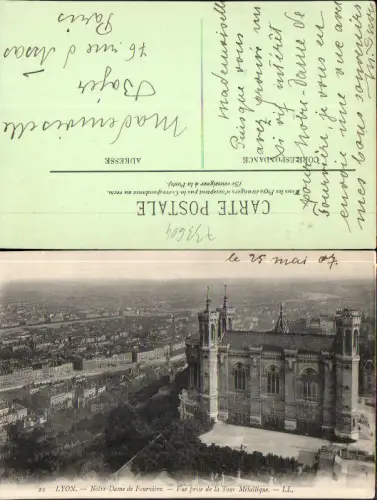 CARTE POSTALE
Tous les Pays étrangers n'acceptent pas la Correspondance au recto.
(Se renseigner à la Poste).
CORRESPONDANCE
ADRESSE
Mademoiselle
Puisque vous
avez prouvé un
si vif intérêt
pour Notre-Dame de
Fourvière, je vous en
envoie une vue avec
mes bons souvenirs
Mademoiselle
Bajer
76 rue d'Assas
Paris
793604
le 25 mai 07
21 LYON. - Notre-Dame de Fourvière. - Vue prise de la Tour Métallique. - LL.